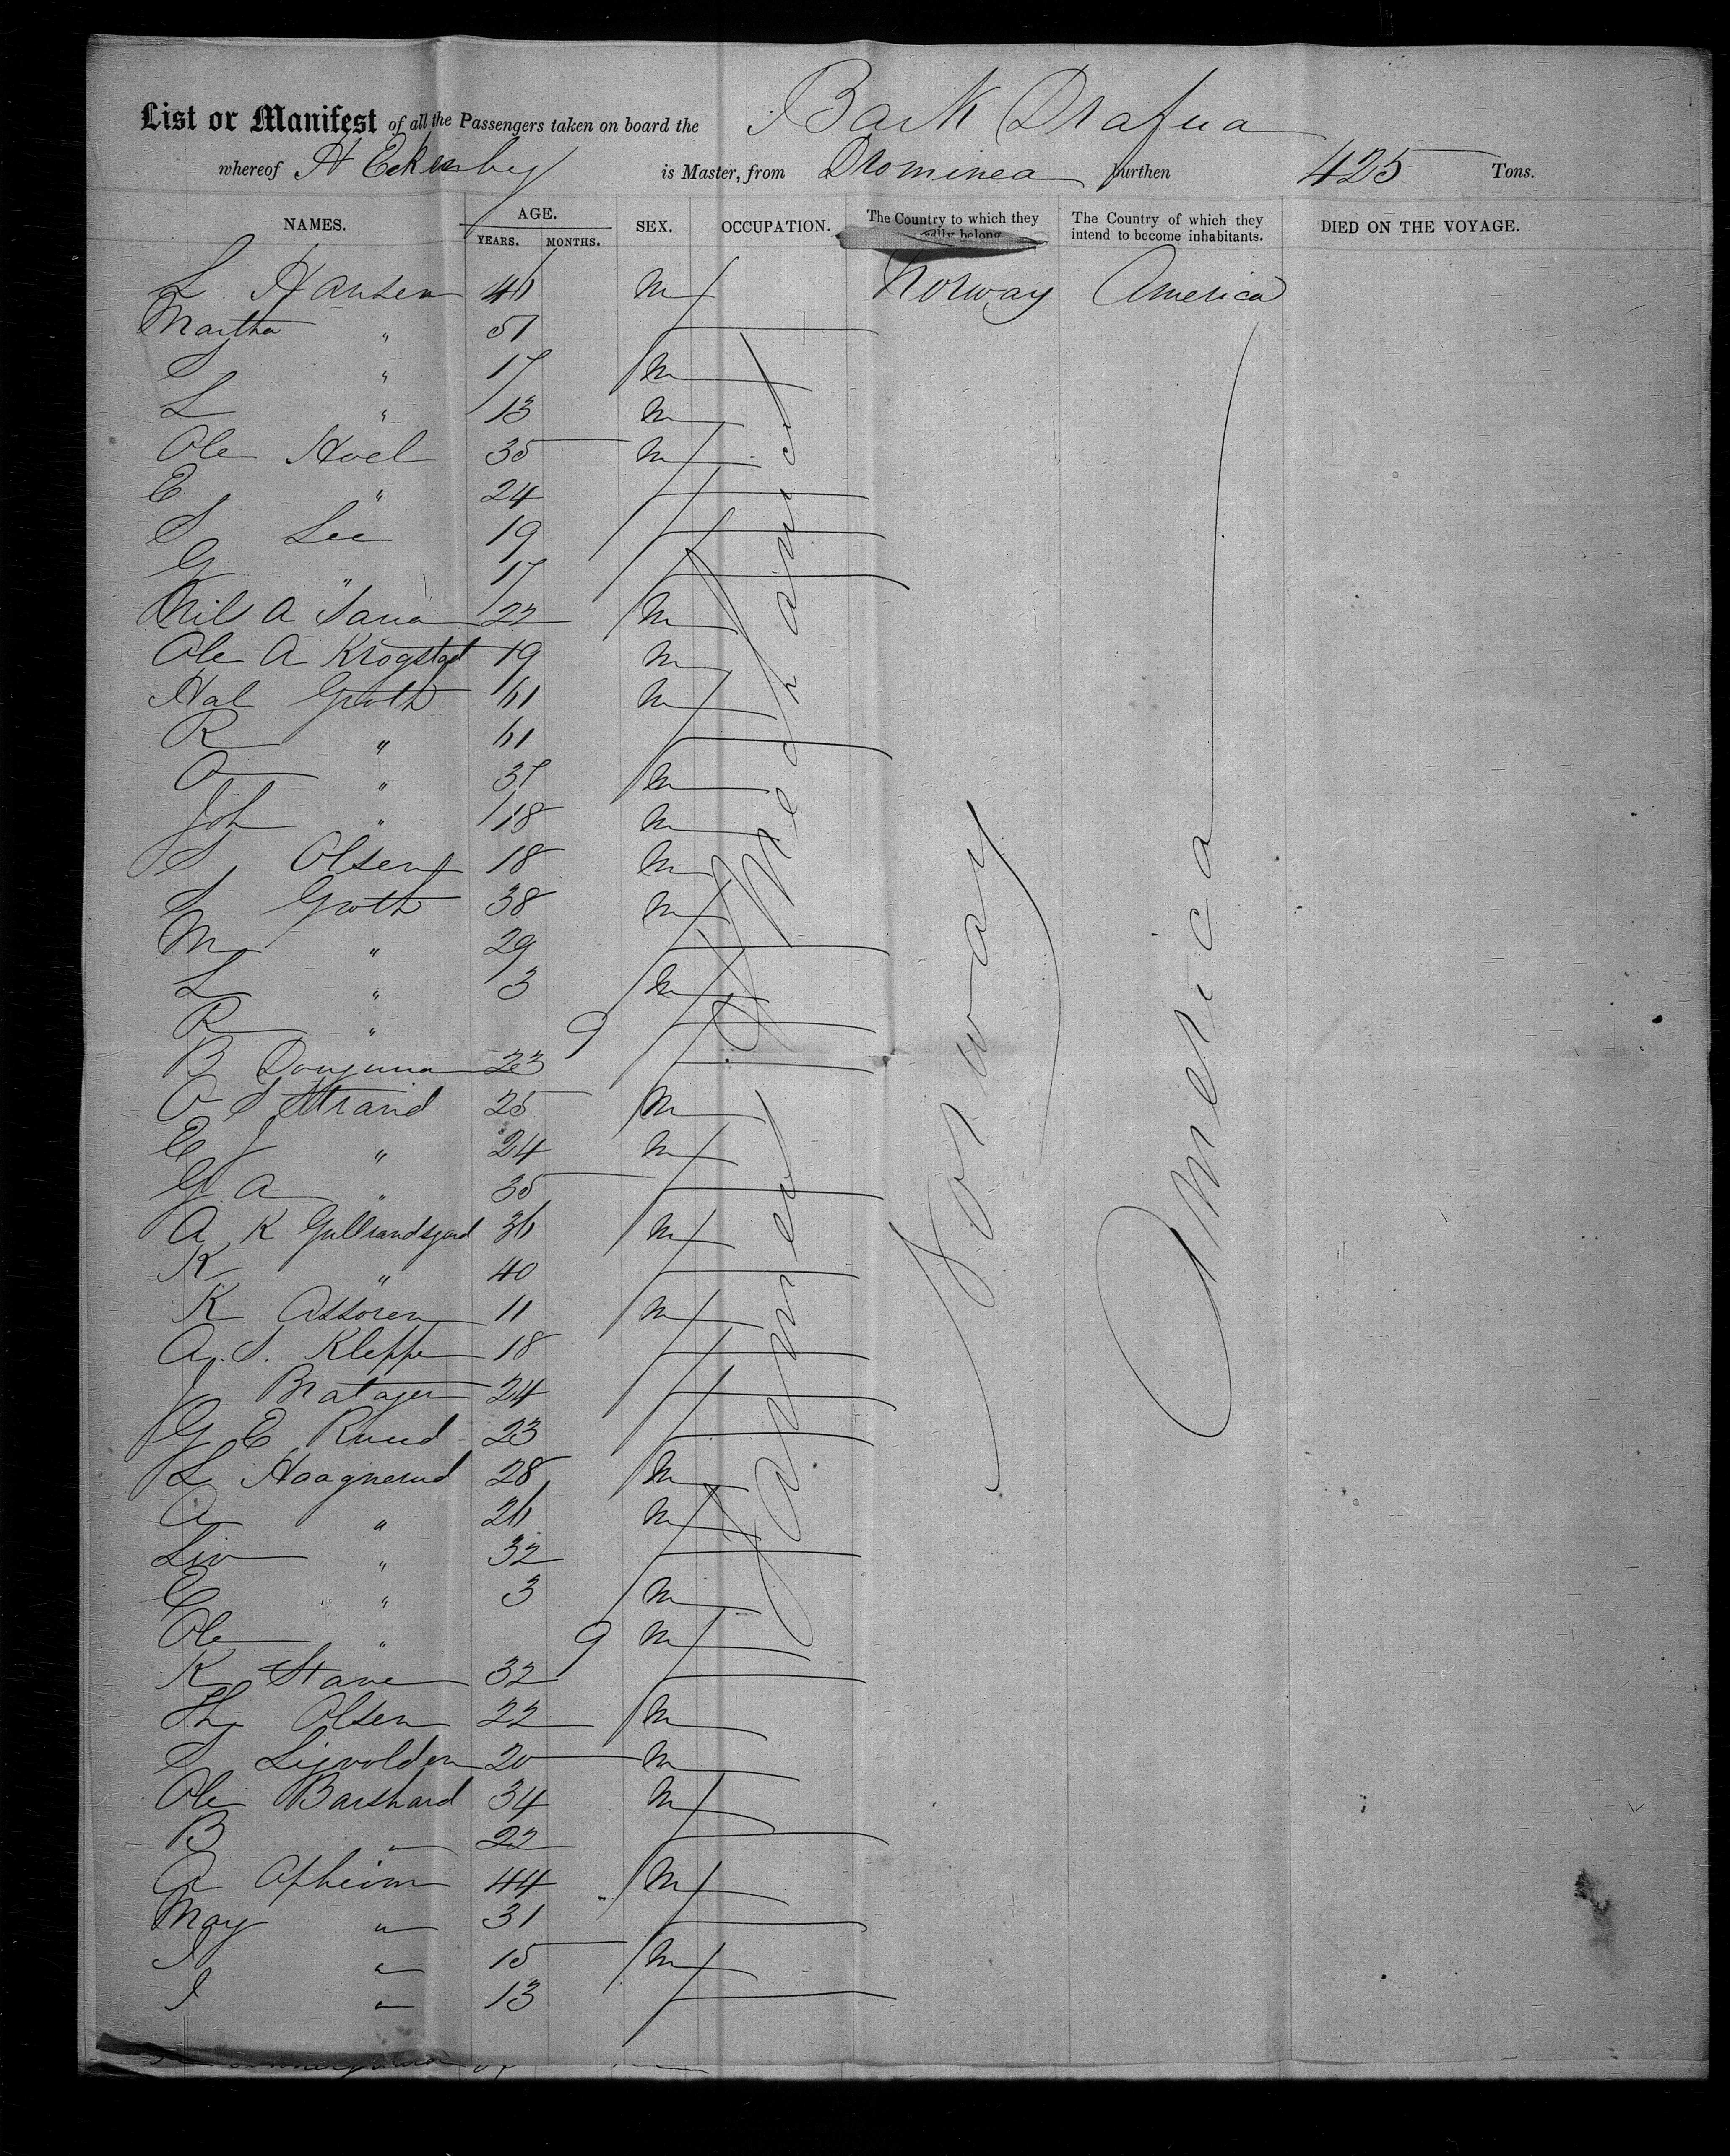 List or Manifest of all the Passengers taken on board the Bark Drafna
whereof H Eckersby is Master, from Drominea burthen 425 Tons.
NAMES. AGE. YEARS. MONTHS. SEX. OCCUPATION. The Country to which they belong The Country of which they intend to become inhabitants. DIED ON THE VOYAGE.
L Hansen 46 m Norway America
Martha " 51 f
S " 17 m
L " 13 m
Ole Hoel 35 m
E " 24 f
S Lee 19 f
G " 17 f
Nils A 22 m
Ole A Krogstad 19 m
Hal Groth 61 m
R " 61 f
O " 37 m
Joh " 18 m
S Olsen 18 m
S Groth 38 m
M " 29 f
L " 3 m
R " 9 f
B 23 f
O S Strand 25 m
E J " 24 m
G A " 35 f
A K Gullrandsgard 36 m
K " 40 f
K Assoren 11 m
A. S. Kleppe 18 f
J Bratager 24 f
G E Ruud 23 f
L Haagnerud 28 m
A " 26 m
Liv " 32 f
E " 3 m
Ole " 9 m
K Stave 32 f
Th Olsen 22 m
S Ligvolden 20 m
Ole Barshard 34 m
B " 22 f
A Opheim 44 m
May " 31 f
S " 15 m
I " 13 f
Mechanics
Farmers
Norway
America